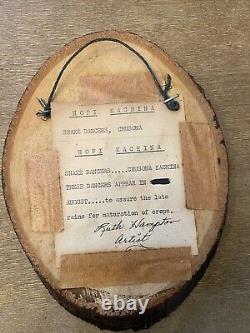 HOPI KACHINA
SNAKE DANCERS, CHUSONA
HOPI KACHINA
SNAKE DANCERS.....CHUSONA KACHINA
THESE DANCERS APPEAR IN
AUGUST.....to assure the late
rains for maturation of crops.
Ruth Hampton
Artist